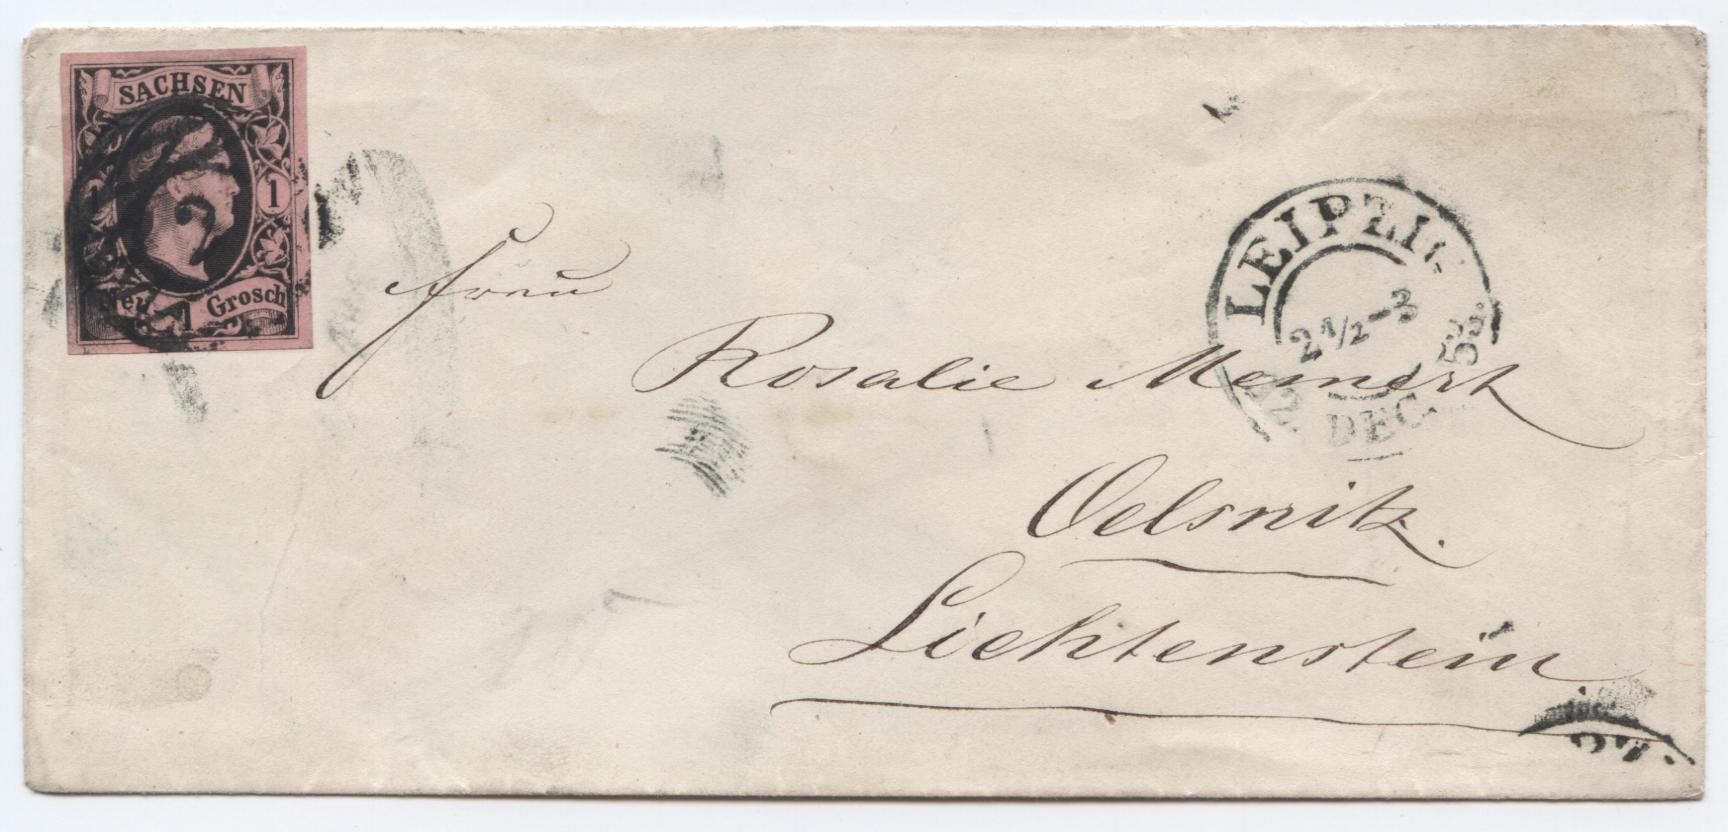 SACHSEN
1
Neu 1 Grosch
LEIPZIG
2 1/2-3
53.
DEC.
Frau
Rosalie Meinert
Oelsnitz.
Lichtenstein.